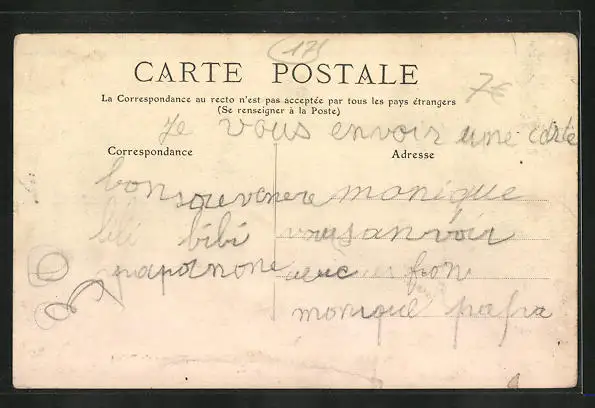 (175
CARTE POSTALE
7€
La Correspondance au recto n'est pas acceptée par tous les pays étrangers
(Se renseigner à la Poste)
Je vous envoir une carte
Correspondance
Adresse
bon souvenere monique
lili bibi vous anvoir
papa none avec fron
monique papa